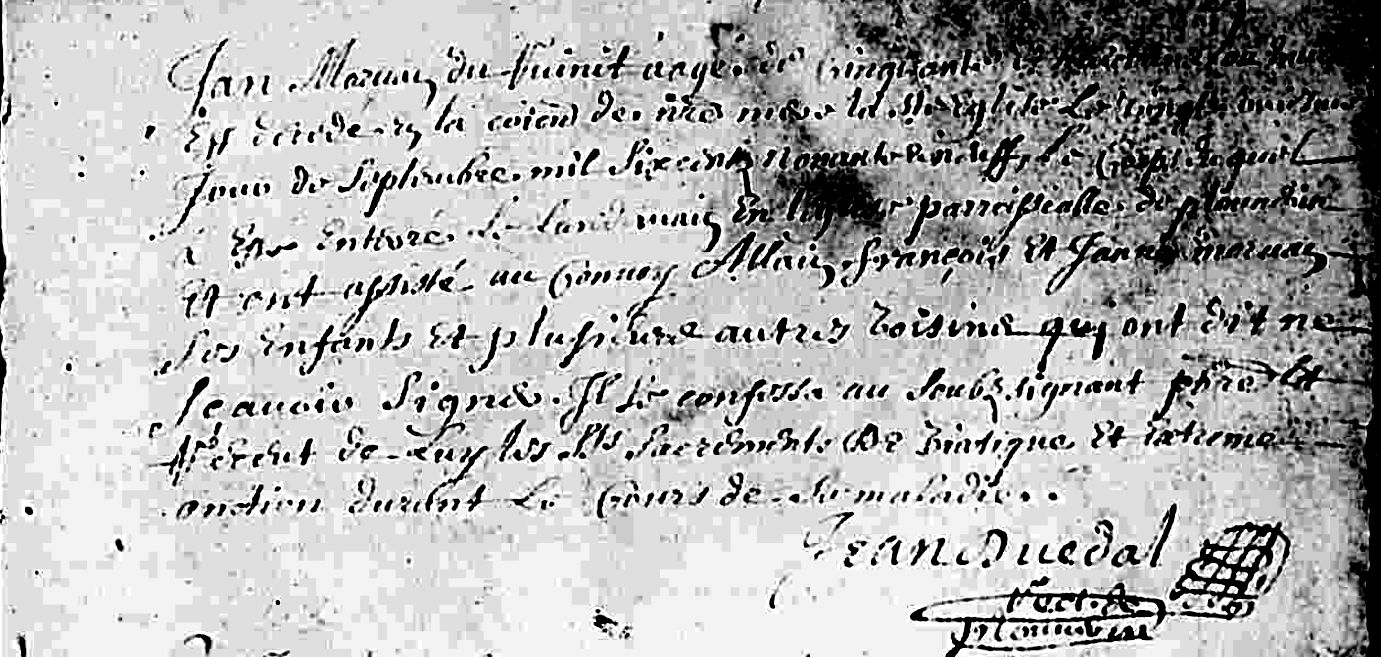 Jan Morvan du aagé de Cinquante
Est decedé en la coion de nre mere la Ste Eglise Le vingt
Jour de Septembre mil Six cents nonante et neuff, le Corps duquel
a Este Enterré Le Landemain En l'Eglise parroissialle de plounevin
Et ont assisté au Convoy Allain, françois Et Janne morvan
Ses Enfants Et plusieure autres Voisins qui ont dit ne
scavoir Signer. Il se confessa au Soubsignant pbre Et
Receut de Luy les Sts Sacrements De Viatique Et extreme
onction durant Le Cours de sa maladie..
Jean Guedal
Rect. de